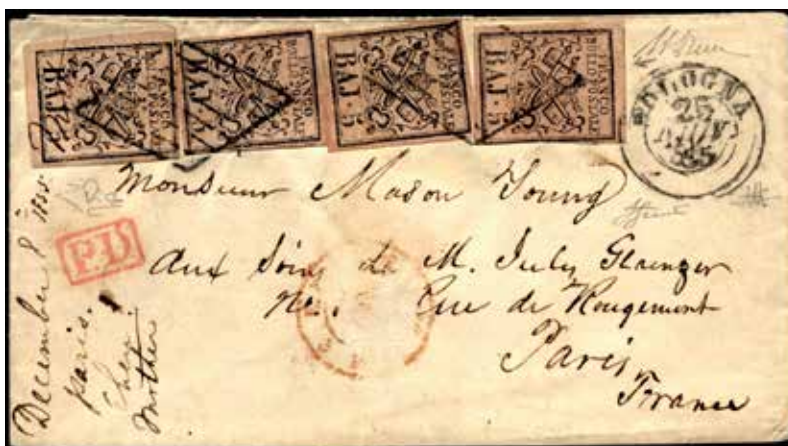 BAJ
FRANCO
BOLLO POSTALE
BAJ 5
FRANCO
BOLLO POSTALE
BAJ · 5
FRANCO
BOLLO POSTALE
BAJ · 5
BOLOGNA
25
NOV
Monsieur Mason Young
P.D.
aux soins de M. July Glaenzer
No. Rue de Rougemont
Paris
France
December 8 1855
Paris.
Chez
Mother